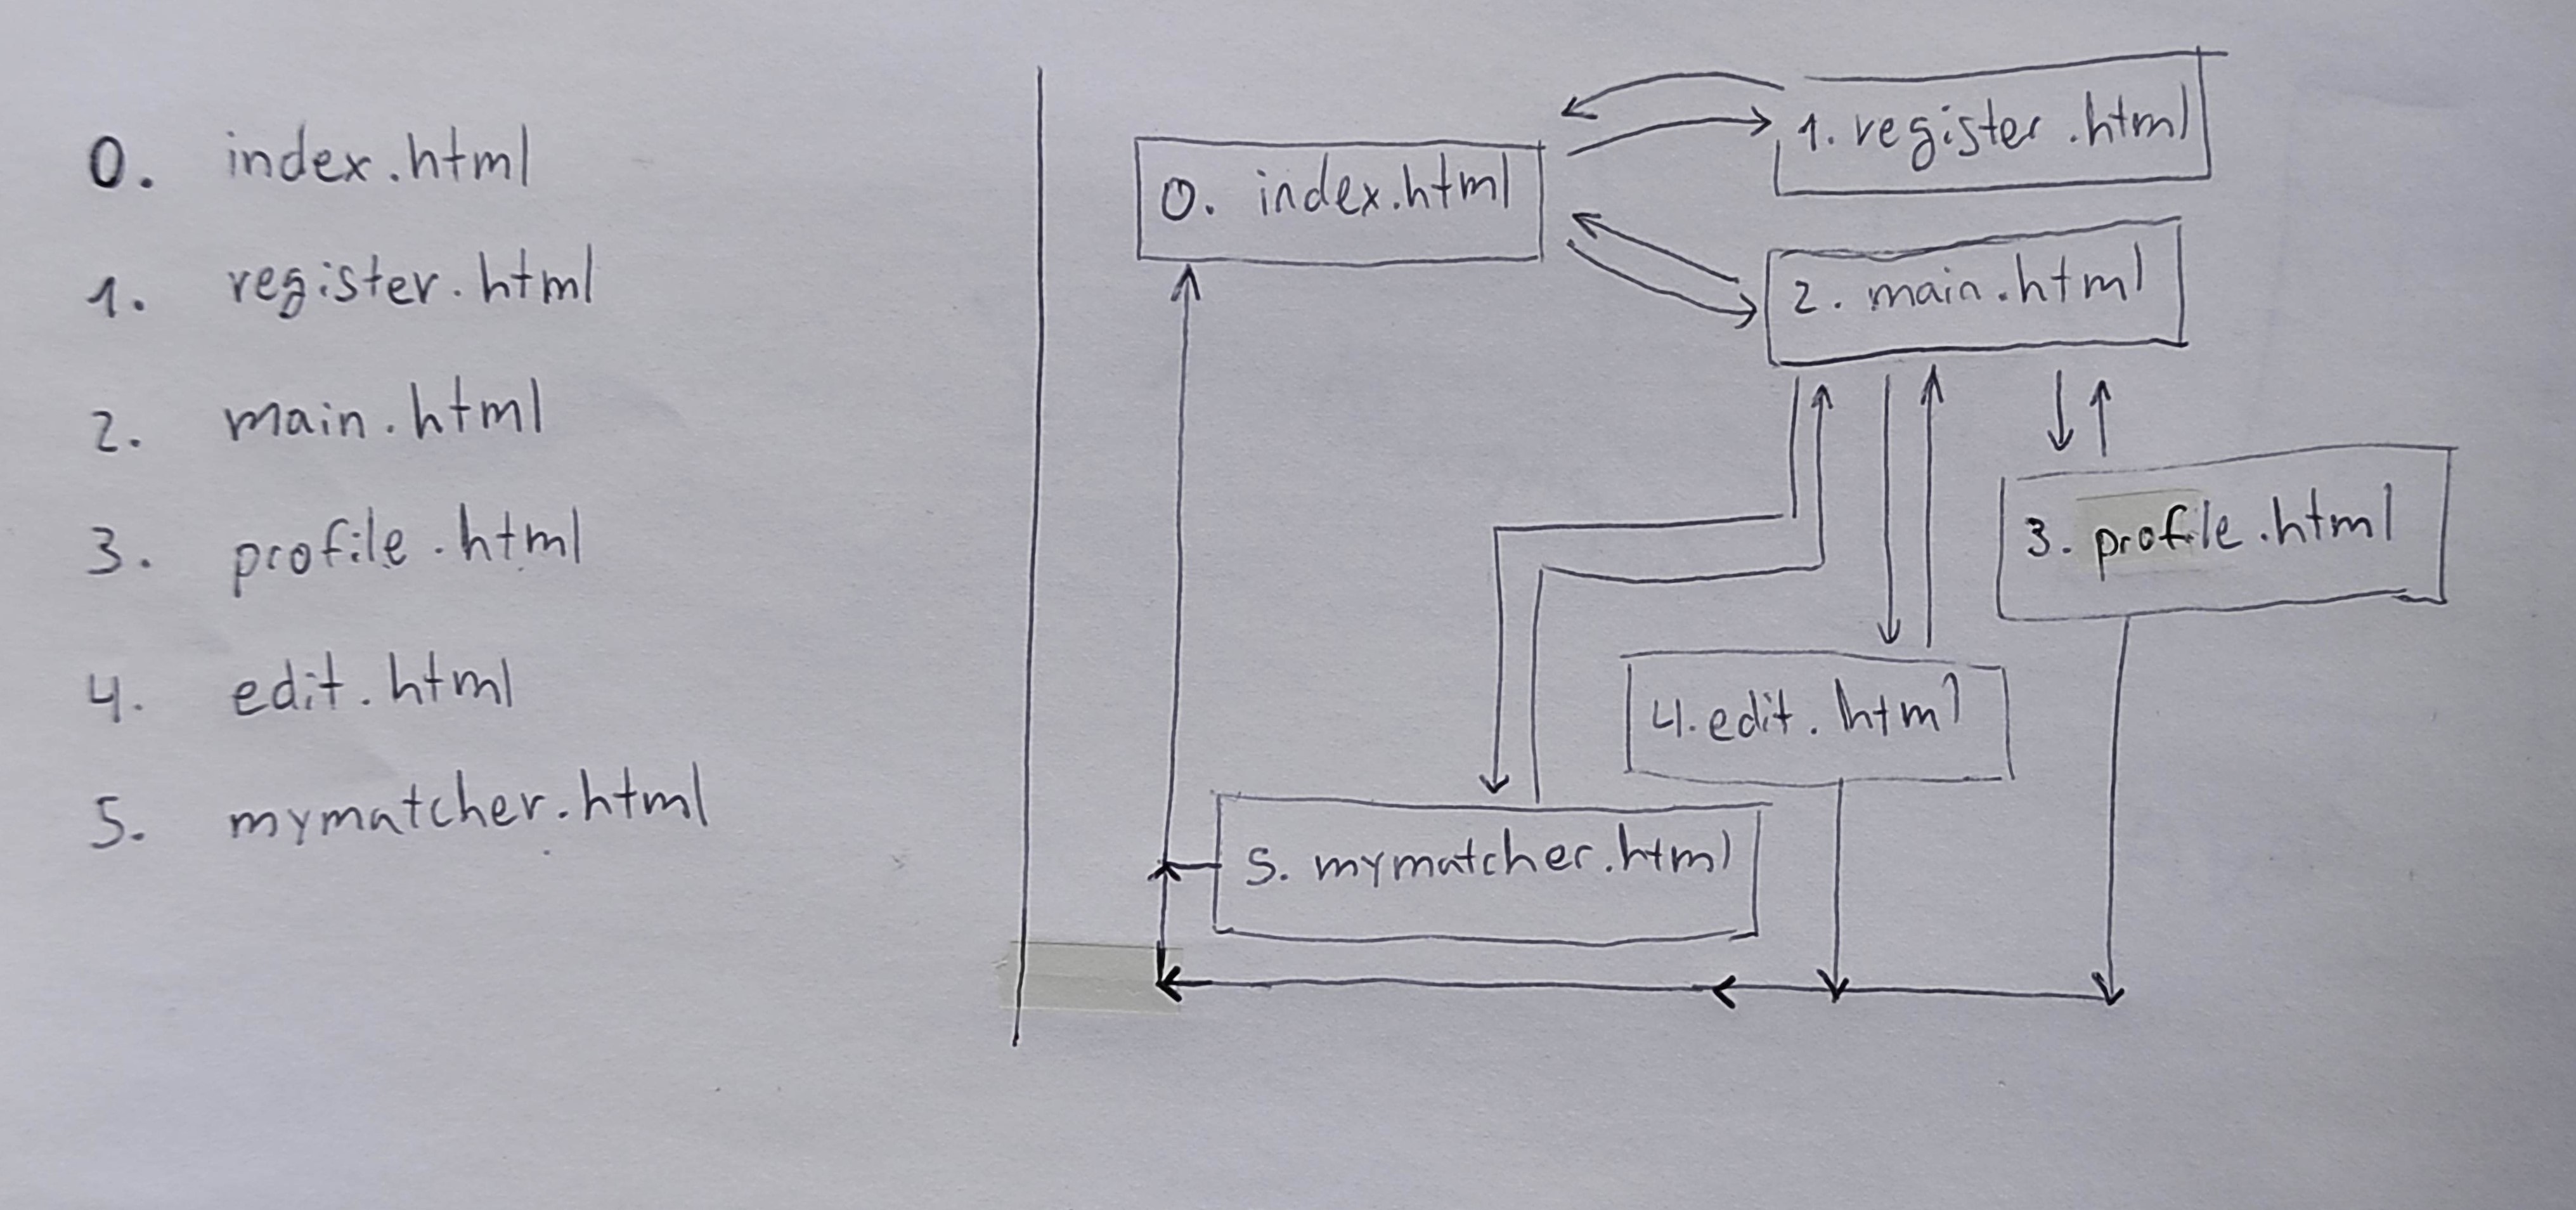 0. index.html
1. register.html
2. main.html
3. profile.html
4. edit.html
5. mymatcher.html
1. register.html
0. index.html
2. main.html
3. profile.html
4. edit.html
5. mymatcher.html